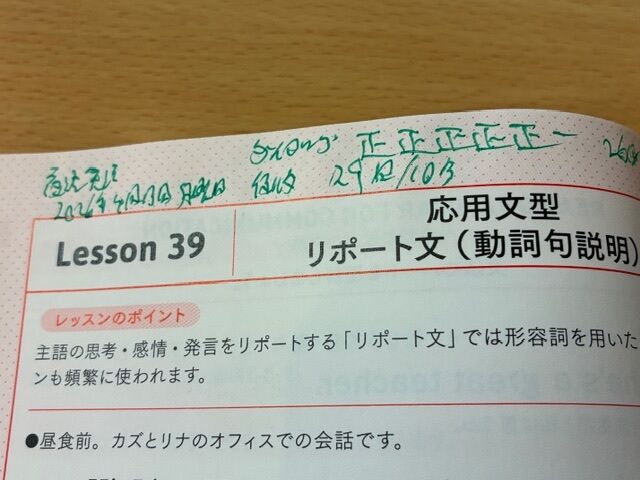 タイピング 正正正正正一
2026年4月13日月曜日
29回/10日
Lesson 39
応用文型
リポート文(動詞句説明)
レッスンのポイント
主語の思考・感情・発言をリポートする「リポート文」では形容詞を用いた
ンも頻繁に使われます。
●昼食前。カズとリナのオフィスでの会話です。